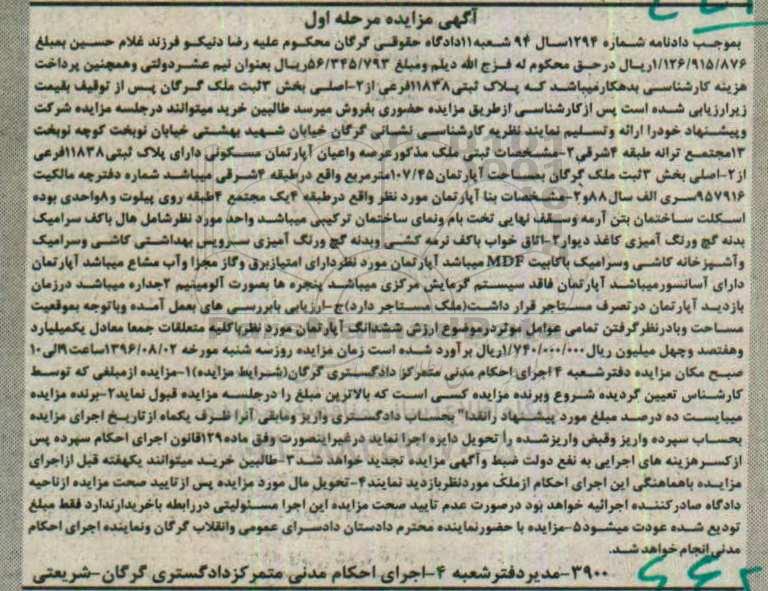 آگهی مزایده مرحله اول
بموجب دادنامه شماره ۱۲۹۴سال ۹۴ شعبه۱۱دادگاه حقوقی گرگان محکوم علیه رضا دنیکو فرزند غلام حسین بمبلغ
۱/۱۲۶/۹۱۵/۸۷۶ریال درحق محکوم له فرج الله دیلم ومبلغ ۵۶/۳۴۵/۷۹۳ریال بعنوان نیم عشردولتی وهمچنین پرداخت
هزینه کارشناسی بدهکارمیباشد که پلاک ثبتی۱۱۸۳۸فرعی از۲-اصلی بخش ۳ثبت ملک گرگان پس از توقیف بقیمت
زیرارزیابی شده است پس ازکارشناسی ازطریق مزایده حضوری بفروش میرسد طالبین خرید میتوانند درجلسه مزایده شرکت
وپیشنهاد خودرا ارائه وتسلیم نمایند نظریه کارشناسی نشانی گرگان خیابان شهید بهشتی خیابان نوبخت کوچه نوبخت
۱۳مجتمع ترانه طبقه ۴شرقی۲-مشخصات ثبتی ملک مذکورعرصه واعیان آپارتمان مسکونی دارای پلاک ثبتی۱۱۸۳۸فرعی
از۲-اصلی بخش ۳ثبت ملک گرگان بمساحت آپارتمان۱۰۷/۴۵مترمربع واقع درطبقه ۴شرقی میباشد شماره دفترچه مالکیت
۹۵۷۹۱۶سری الف سال۸۸و۲-مشخصات بنا آپارتمان مورد نظر واقع درطبقه ۴یک مجتمع ۴طبقه روی پیلوت و۸واحدی بوده
اسکلت ساختمان بتن آرمه وسقف نهایی تخت بام ونمای ساختمان ترکیبی میباشد واحد مورد نظرشامل هال باکف سرامیک
بدنه گچ ورنگ آمیزی کاغذ دیوار۲-اتاق خواب باکف نرمه کشی وبدنه گچ ورنگ آمیزی سرویس بهداشتی کاشی وسرامیک
وآشپزخانه کاشی وسرامیک باکابیت MDF میباشد آپارتمان مورد نظردارای امتیازبرق وگاز مجزا وآب مشاع میباشد آپارتمان
دارای آسانسورمیباشد آپارتمان فاقد سیستم گرمایش مرکزی میباشد پنجره ها بصورت آلومینیم ۲جداره میباشد درزمان
بازدید آپارتمان درتصرف مستاجر قرار داشت(ملک مستاجر دارد)ج-ارزیابی بابررسی های بعمل آمده وباتوجه بموقعیت
مساحت وبادرنظرگرفتن تمامی عوامل موثردرموضوع ارزش ششدانگ آپارتمان مورد نظرباکلیه متعلقات جمعا معادل یکمیلیارد
وهفتصد وچهل میلیون ریال۱/۷۴۰/۰۰۰/۰۰۰ریال برآورد شده است زمان مزایده روزسه شنبه مورخه ۱۳۹۶/۰۸/۰۲ساعت۹الی۱۰
صبح مکان مزایده دفترشعبه ۴ اجرای احکام مدنی متمرکز دادگستری گرگان(شرایط مزایده)۱-مزایده ازمبلغی که توسط
کارشناس تعیین گردیده شروع وبرنده مزایده کسی است که بالاترین مبلغ را درجلسه مزایده قبول نماید۲-برنده مزایده
میبایست ده درصد مبلغ مورد پیشنهاد رانقدا" بحساب دادگستری واریز ومابقی آنرا ظرف یکماه ازتاریخ اجرای مزایده
بحساب سپرده واریز وقبض واریزشده را تحویل دایره اجرا نماید درغیراینصورت وفق ماده۱۲۹قانون اجرای احکام سپرده پس
ازکسرهزینه های اجرایی به نفع دولت ضبط وآگهی مزایده تجدید خواهد شد۳-طالبین خرید میتوانند یکهفته قبل ازاجرای
مزایده باهماهنگی این اجرای احکام ازملک موردنظربازدید نمایند۴-تحویل مال مورد مزایده پس ازتایید صحت مزایده ازناحیه
دادگاه صادرکننده اجرائیه خواهد بود درصورت عدم تایید صحت مزایده این اجرا مسئولیتی دررابطه باخریدارندارد فقط مبلغ
تودیع شده عودت میشود۵-مزایده با حضورنماینده محترم دادستان دادسرای عمومی وانقلاب گرگان ونماینده اجرای احکام
مدنی انجام خواهد شد.
۳۹۰۰-مدیردفترشعبه ۴-اجرای احکام مدنی متمرکزدادگستری گرگان-شریعتی